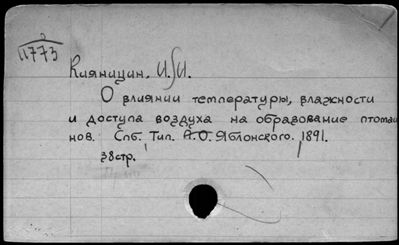 11773
Кияницин. И.И.
О влиянии температуры, влажности
и доступа воздуха на образование птомаи
нов. Спб. Тип. А.О. Яблонского. 1891.
38стр.